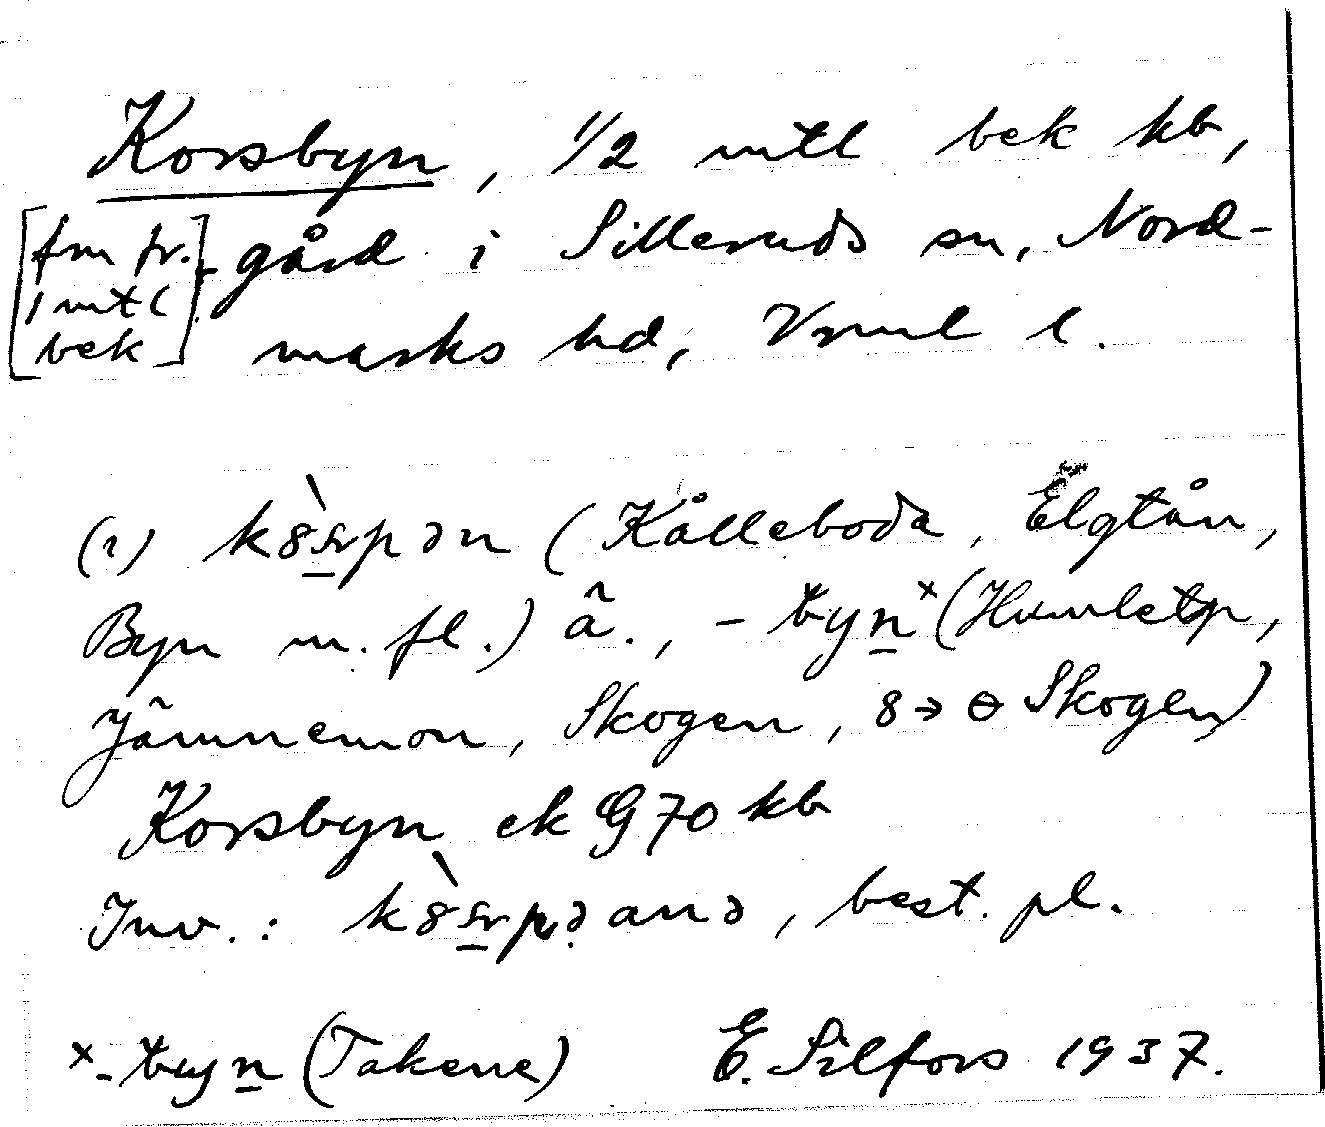 Korsbyn, 1/2 mtl bek kb,
[fm fr. 1 mtl bek] -gård i Silleruds sn, Nord-
marks hd, Vrml l.
(1) k8̀s̠rpən (Kålleboda, Elgtån,
Byn m. fl.) ã., -byn̠ˣ (Humletp,
Jämnemon, Skogen, 8→ɵ Skogen)
Korsbyn ek G70 kb
Inv.: k8̀s̠rpəanə, best. pl.
ˣ-byn̠ (Takene) E. Silfors 1937.